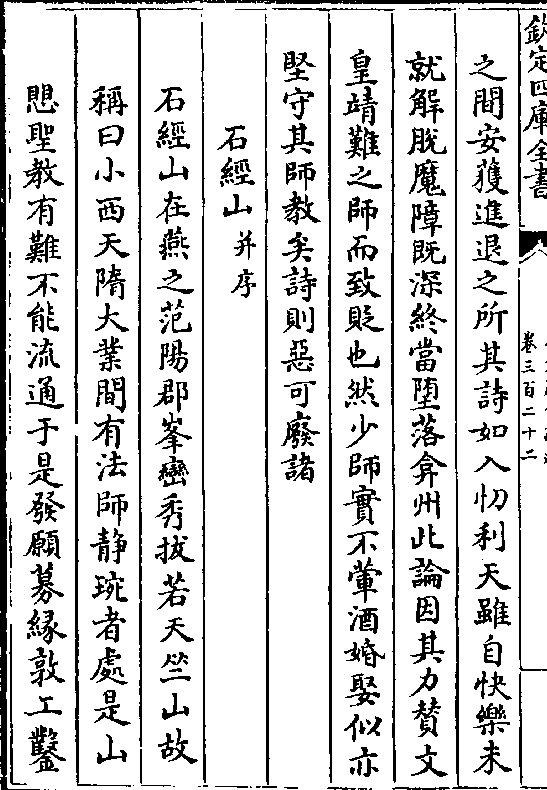 欽定四庫全書
卷三百二十二
之間安獲進退之所其詩如入忉利天雖自快樂未
就解脫魔障既深終當墮落弇州此論因其力贊文
皇靖難之師而致貶也然少師實不葷酒婚娶似亦
堅守其師教矣詩則惡可廢諸
石經山并序
石經山在燕之范陽郡峯巒秀拔若天竺山故
稱曰小西天隋大業間有法師静琬者處是山
愳聖教有難不能流通于是發願募緣敦工鑿